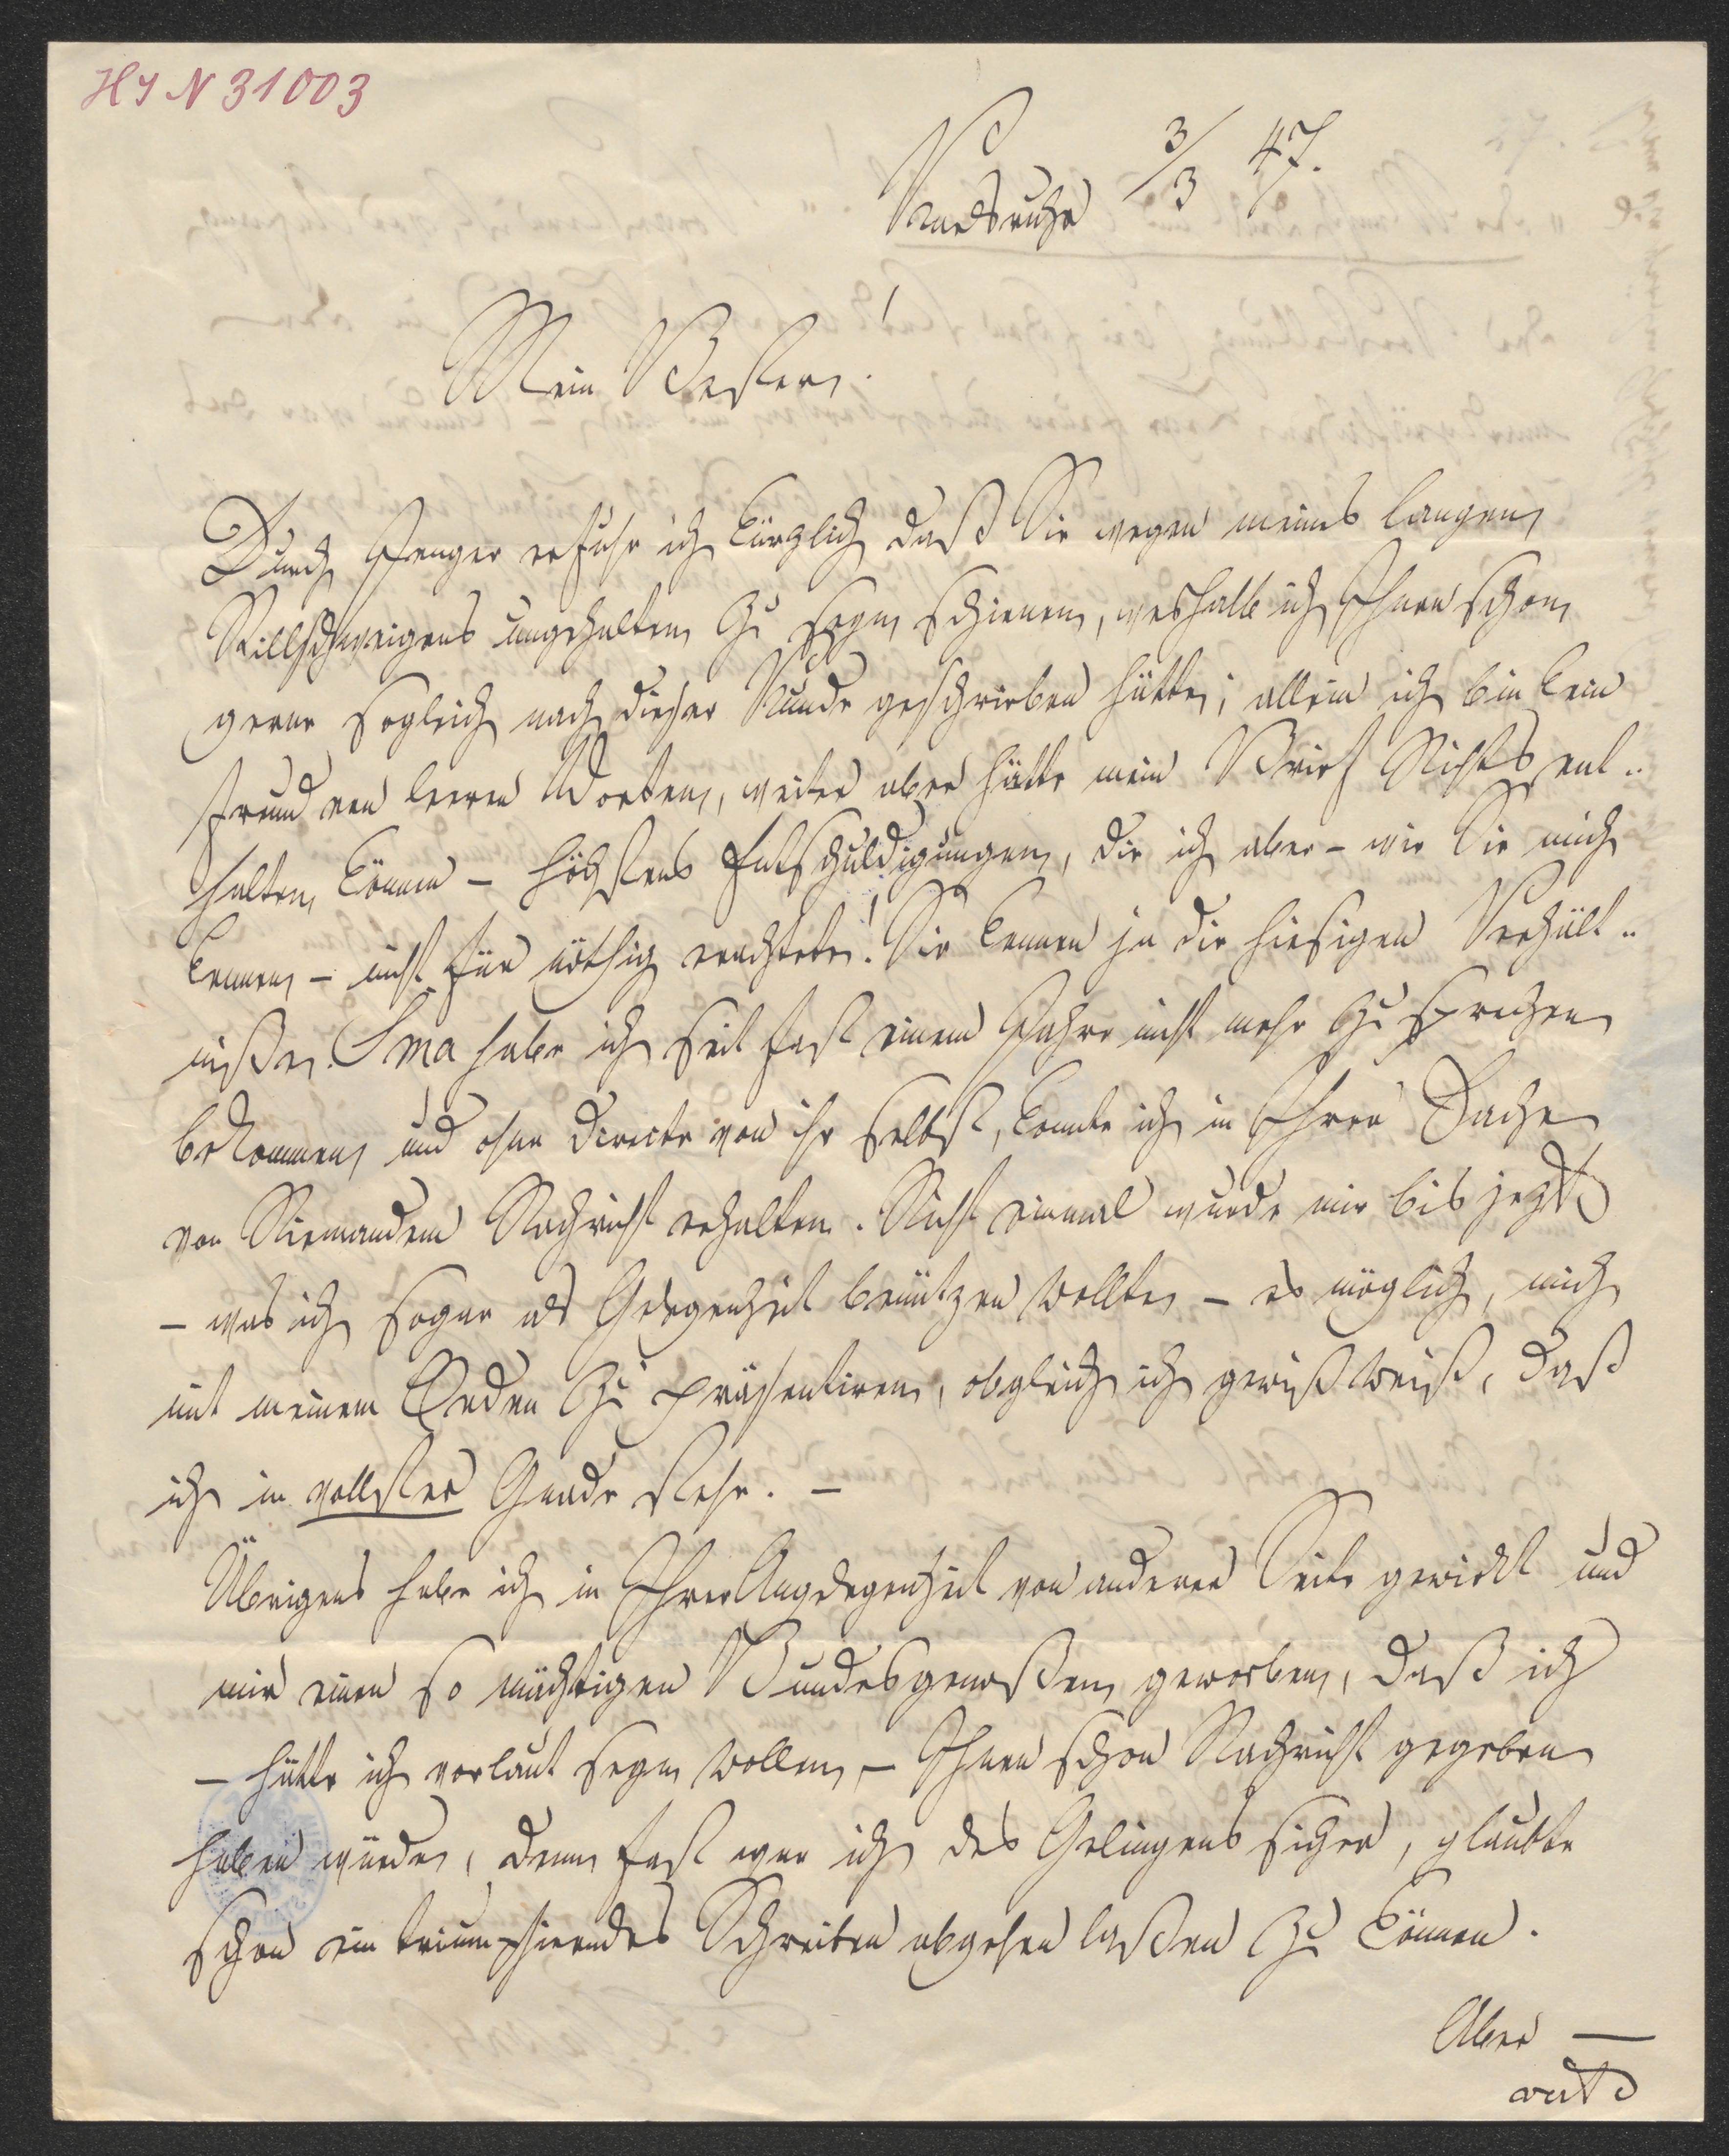 HIN 31003
Karlsruhe 3/3 47.
Mein Bester!
Durch Spenger erfuhr ich kürzlich daß Sie wegen meines langen
Stillschweigens ungehalten zu seyn schienen, weshalb ich Ihnen schon
gerne sogleich nach dieser Kunde geschrieben hätte; allein ich bin kein
Freund von leeren Worten, weiter aber hätte mein Brief Nichts ent-
halten können – höchstens Entschuldigungen, die ich aber – wie Sie mich
kennen – nicht für nöthig erachtete! Sie kennen ja die hiesigen Verhält-
niße. habe ich seit fast einem Jahre nicht mehr zu sprechen
bekommen und ohne directe von ihr selbst, konnte ich in Ihrer Sache
von Niemandem Nachricht erhalten. Nicht einmal wurde mir bis jezt
– was ich sogar als Gelegenheit benützen wollte – es möglich, mich
mit meinem Orden zu präsentiren, obgleich ich gewiß weiß, daß
ich in vollster Gnade stehe. –
Übrigens habe ich in Ihrer Angelegenheit von anderer Seite gewirkt und
mir einen so mächtigen Bundesgenoßen geworben, daß ich
– hätte ich vorlaut seyn wollen, – Ihnen schon Nachricht gegeben
haben würde, denn fast war ich des Gelingens sicher, glaubte
schon ein triumphirendes Schreiben abgehen laßen zu können.
Aber —